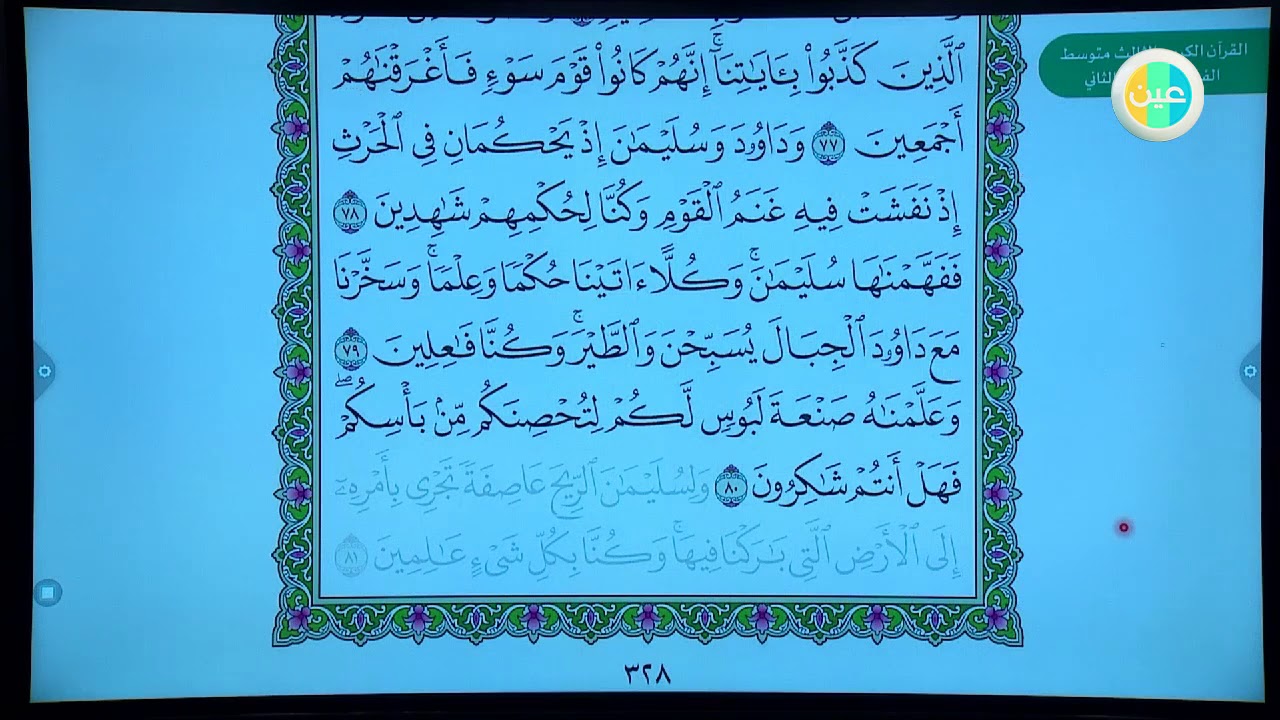 القرآن الكريم الثالث متوسط
الثاني
عين
ٱلَّذِينَ كَذَّبُوا۟ بِـَٔايَـٰتِنَآۚ إِنَّهُمْ كَانُوا۟ قَوْمَ سَوْءٍ فَأَغْرَقْنَـٰهُمْ
أَجْمَعِينَ ٧٧ وَدَاوُۥدَ وَسُلَيْمَـٰنَ إِذْ يَحْكُمَانِ فِى ٱلْحَرْثِ
إِذْ نَفَشَتْ فِيهِ غَنَمُ ٱلْقَوْمِ وَكُنَّا لِحُكْمِهِمْ شَـٰهِدِينَ ٧٨
فَفَهَّمْنَـٰهَا سُلَيْمَـٰنَۚ وَكُلًّا ءَاتَيْنَا حُكْمًا وَعِلْمًاۚ وَسَخَّرْنَا
مَعَ دَاوُۥدَ ٱلْجِبَالَ يُسَبِّحْنَ وَٱلطَّيْرَۚ وَكُنَّا فَـٰعِلِينَ ٧٩
وَعَلَّمْنَـٰهُ صَنْعَةَ لَبُوسٍ لَّكُمْ لِتُحْصِنَكُم مِّنۢ بَأْسِكُمْۖ
فَهَلْ أَنتُمْ شَـٰكِرُونَ ٨٠ وَلِسُلَيْمَـٰنَ ٱلرِّيحَ عَاصِفَةً تَجْرِى بِأَمْرِهِۦٓ
إِلَى ٱلْأَرْضِ ٱلَّتِى بَـٰرَكْنَا فِيهَاۚ وَكُنَّا بِكُلِّ شَىْءٍ عَـٰلِمِينَ ٨١
٣٢٨